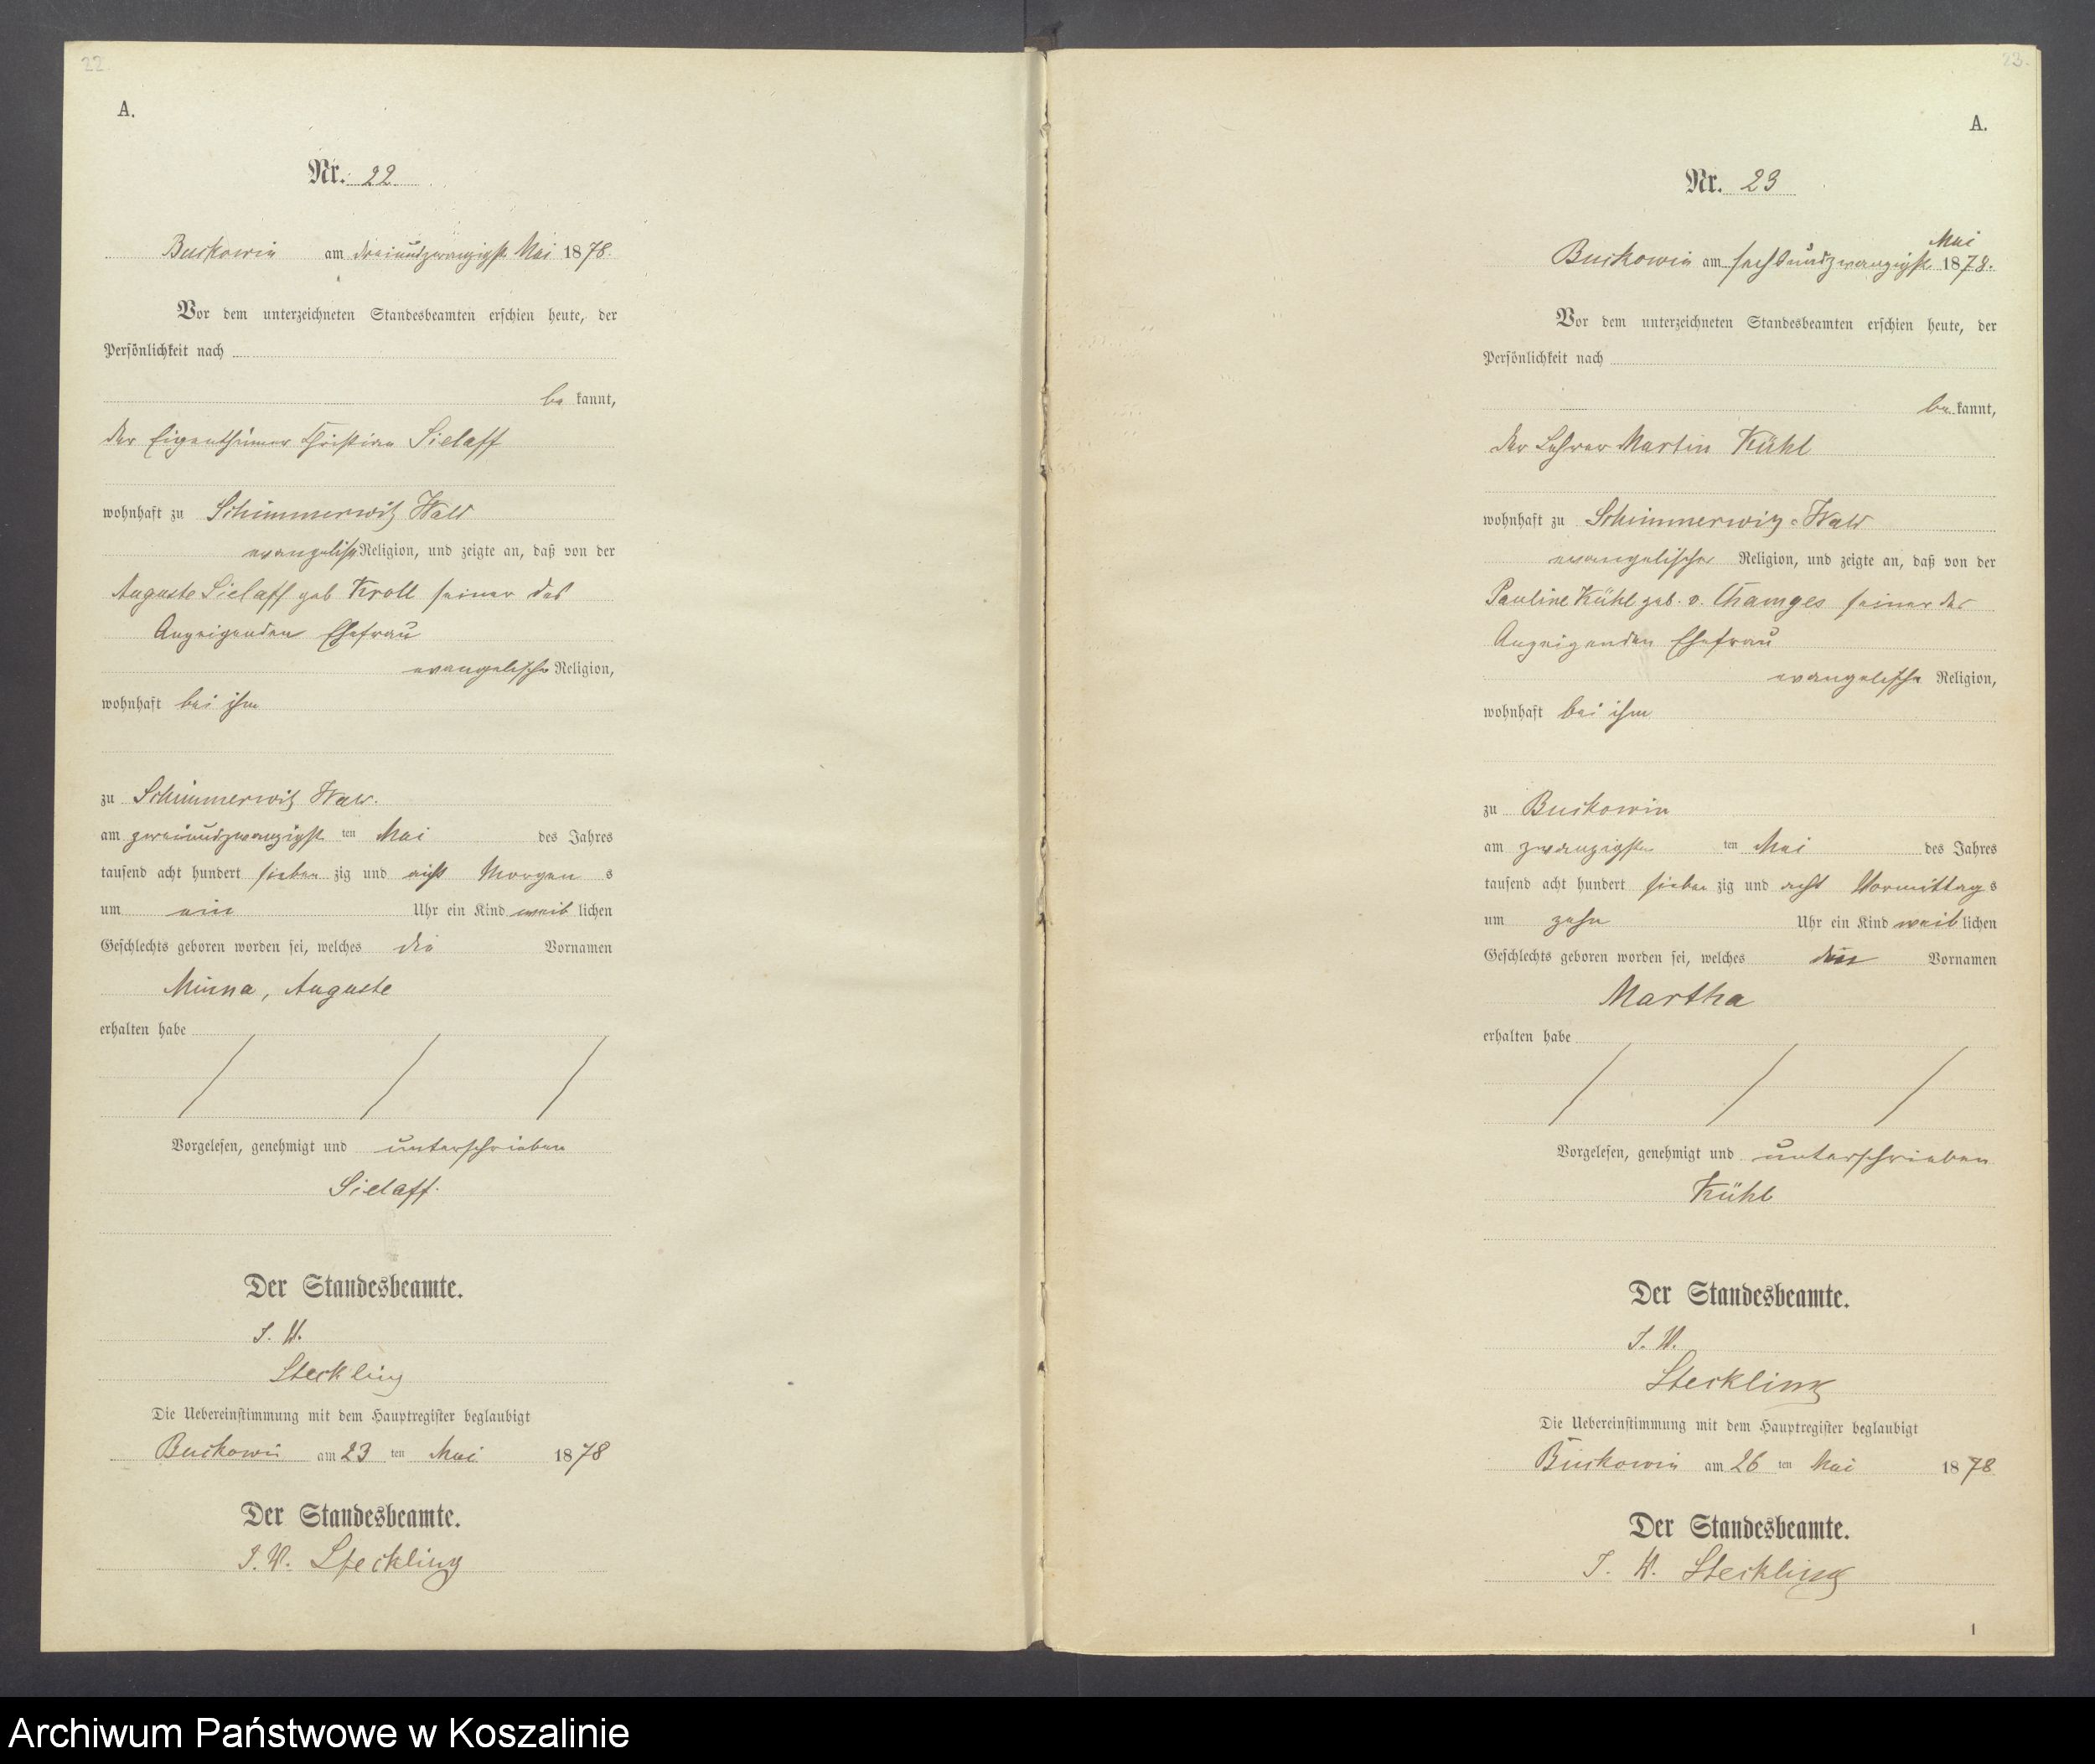 22.
A.
Nr. 22
Buckowin am dreiundzwanzigst Mai 1878.
Vor dem unterzeichneten Standesbeamten erschien heute, der
Persönlichkeit nach
be kannt,
der Eigenthümer Christian Sielaff
wohnhaft zu Schimmerwitz Wald
evangelisch Religion, und zeigte an, daß von der
Auguste Sielaff geb Kroll seiner des
Anzeigenden Ehefrau
evangelischer Religion,
wohnhaft bei ihm
zu Schimmerwitz Wald.
am zweiundzwanzigst ten Mai des Jahres
tausend acht hundert sieben zig und acht Morgen s
um ein Uhr ein Kind weib lichen
Geschlechts geboren worden sei, welches die Vornamen
Minna, Auguste
erhalten habe
Vorgelesen, genehmigt und unterschrieben
Sielaff.
Der Standesbeamte.
I. V.
Steckling
Die Uebereinstimmung mit dem Hauptregister beglaubigt
Buckowin am 23 ten Mai 1878
Der Standesbeamte.
I. V. Steckling
23.
A.
Nr. 23
Mai
Buckowin am sechsundzwanzigst 1878.
Vor dem unterzeichneten Standesbeamten erschien heute, der
Persönlichkeit nach
be kannt,
der Lehrer Martin Kühl
wohnhaft zu Schimmerwitz-Wald
evangelischer Religion, und zeigte an, daß von der
Pauline Kühl geb. v. seiner des
Anzeigenden Ehefrau
evangelischer Religion,
wohnhaft bei ihm
zu Buckowin
am zwanzigsten ten Mai des Jahres
tausend acht hundert sieben zig und acht Vormittag s
um zehn Uhr ein Kind weib lichen
Geschlechts geboren worden sei, welches den Vornamen
Martha
erhalten habe
Vorgelesen, genehmigt und unterschrieben
Kühl
Der Standesbeamte.
I. V.
Steckling
Die Uebereinstimmung mit dem Hauptregister beglaubigt
Buckowin am 26 ten Mai 1878
Der Standesbeamte.
I. V. Steckling
1
Archiwum Państwowe w Koszalinie